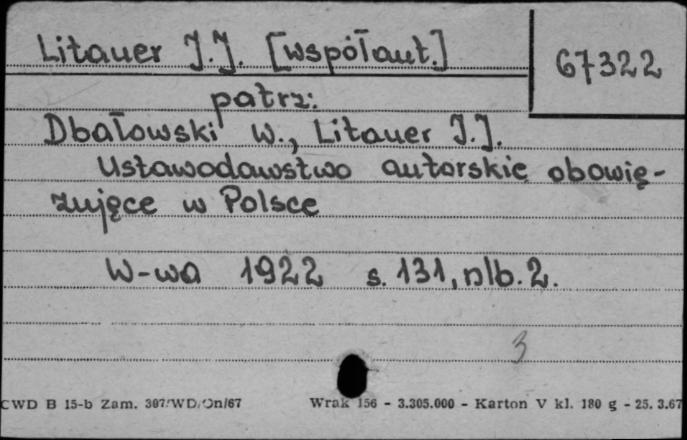 Litauer J.J. [współaut.]
67322
patrz:
Dbałowski W., Litauer J.J.
Ustawodawstwo autorskie obowię-
zujęce w Polsce
W-wa 1922 s. 131, nlb. 2.
3
CWD B 15-b Zam. 307/WD/On/67 Wrak 156 - 3.305.000 - Karton V kl. 180 g - 25.3.67